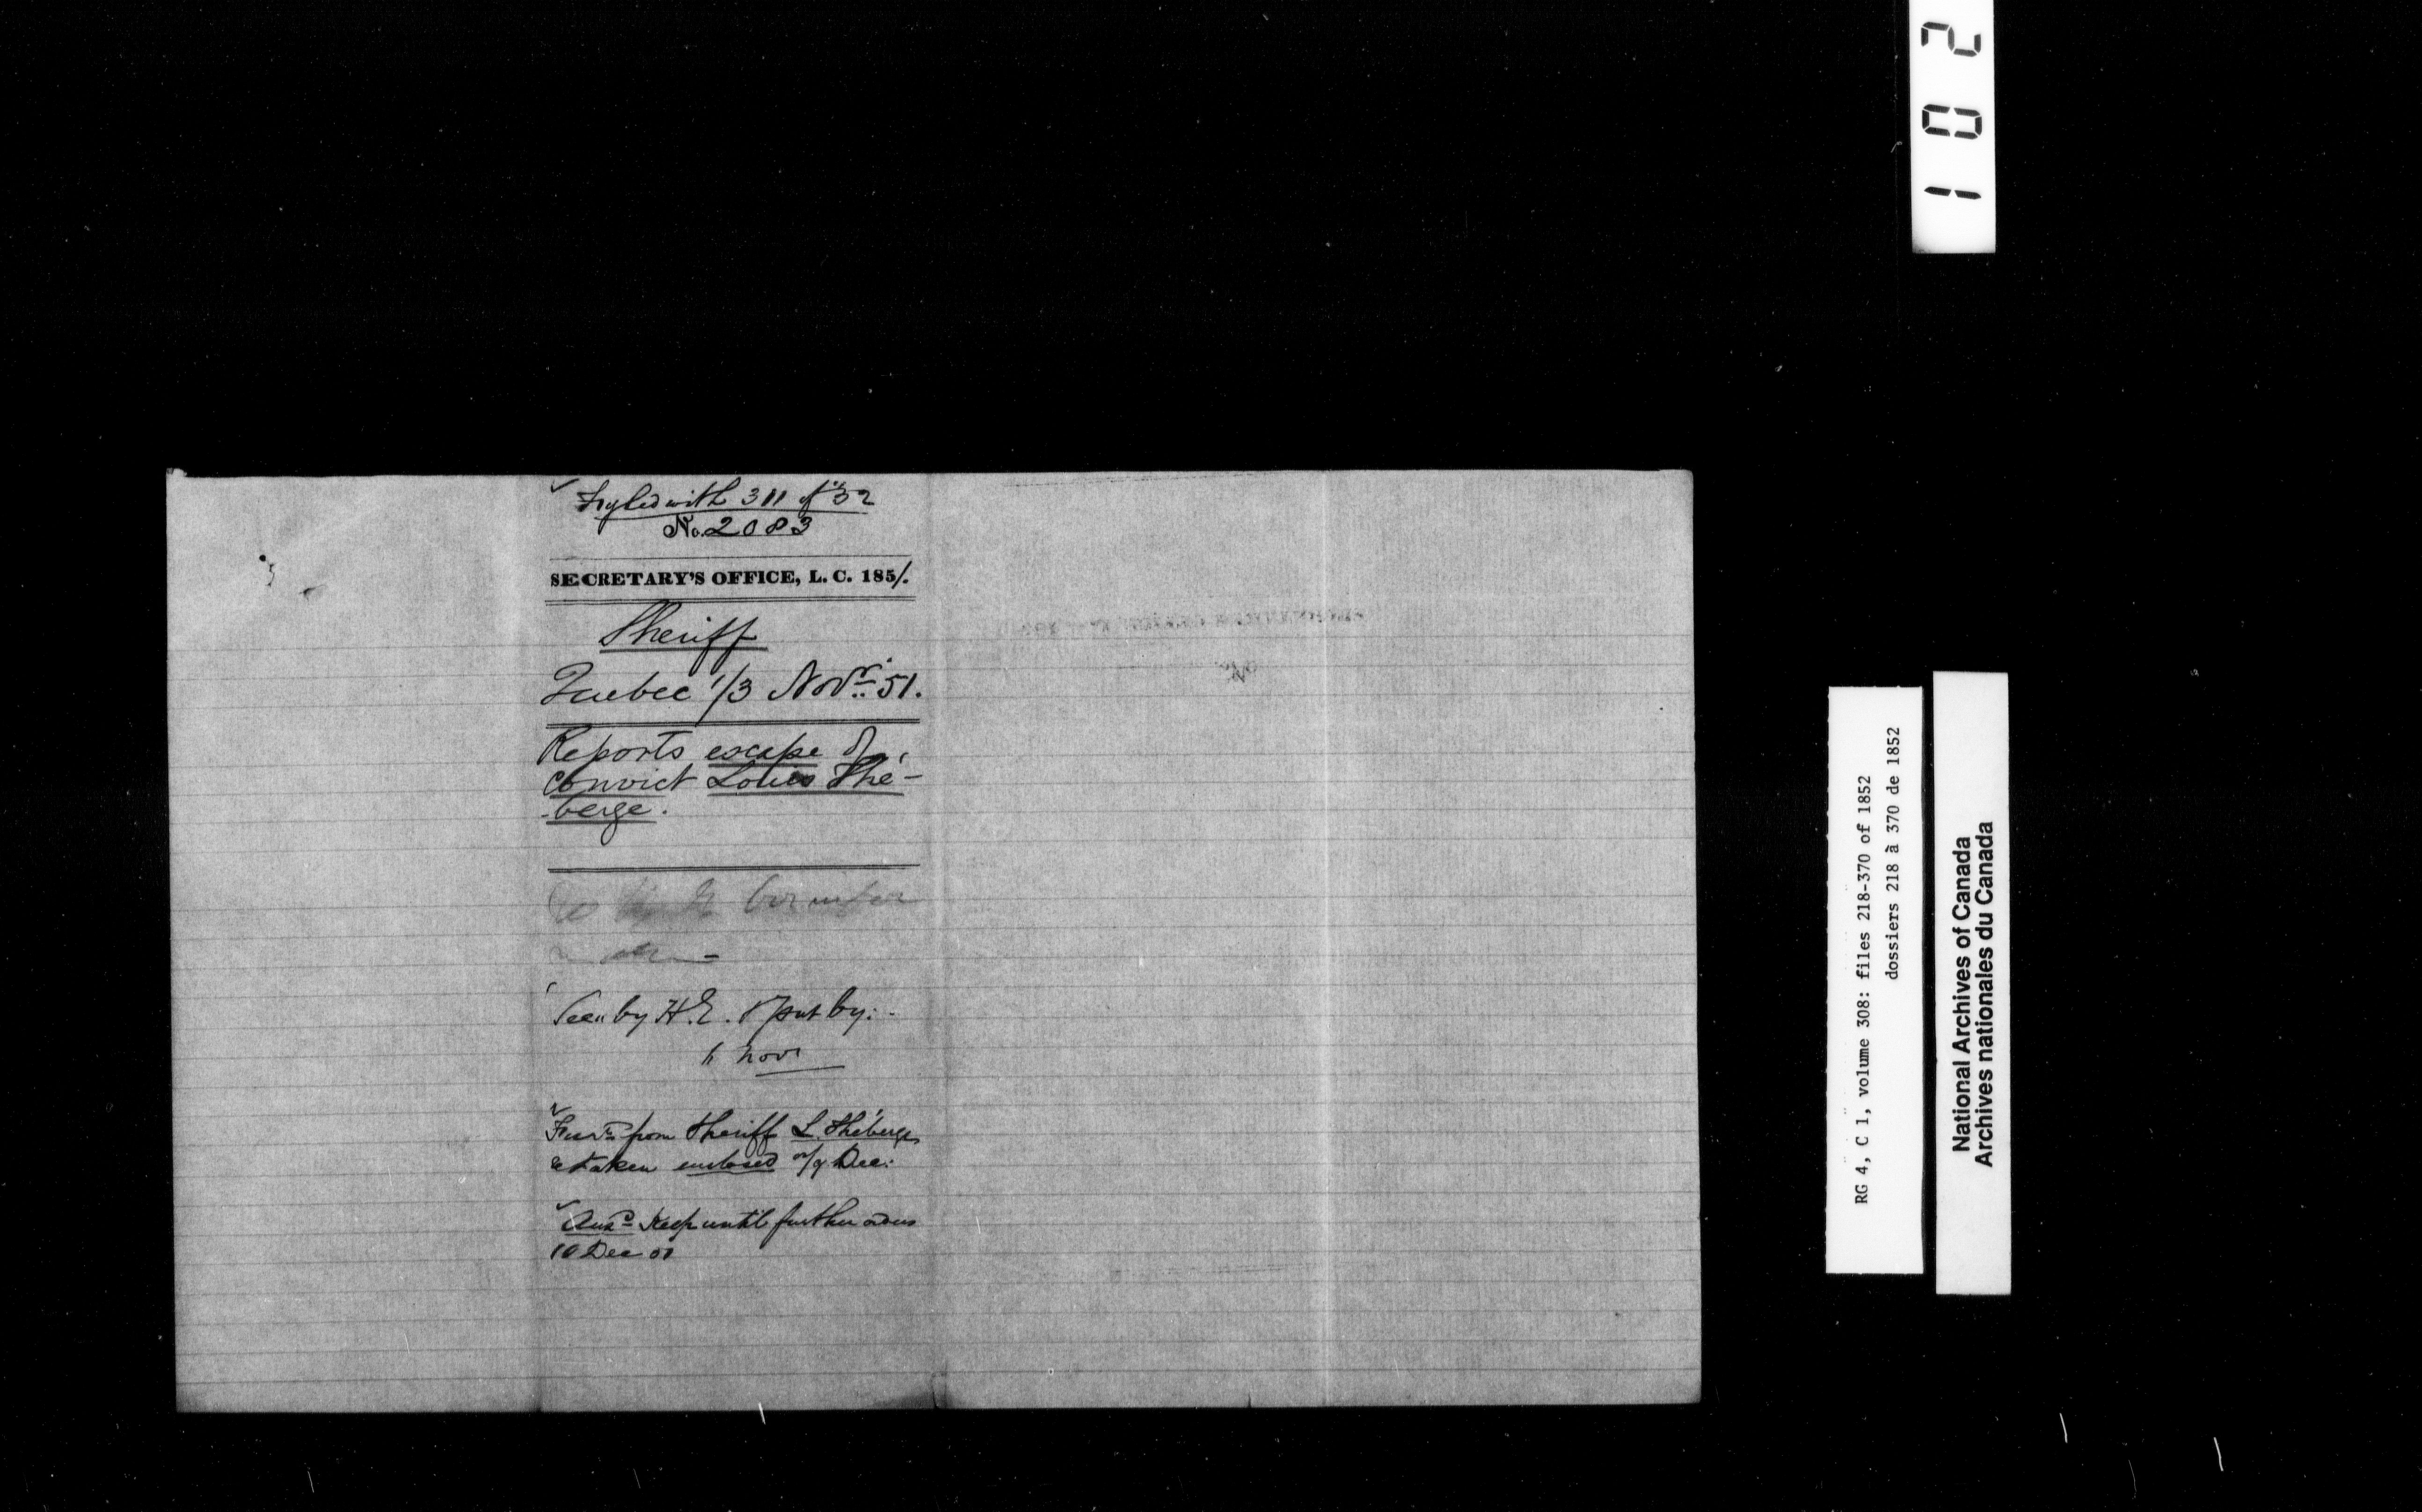 Fyled with 311 of 52
No. 2083
SECRETARY'S OFFICE, L. C. 1851.
Sheriff
Quebec 1/3 Novr. 51.
Reports escape of
convict Louis Thé-
-berge.
Seen by H.E. & put by:
6 Novr
from Sheriff L. Théberge
retaken enclosed 9 Dec:
Ansd. Keep until further orders
10 Dec 51
102
RG 4, C 1, volume 308: files 218-370 of 1852
dossiers 218 à 370 de 1852
National Archives of Canada
Archives nationales du Canada